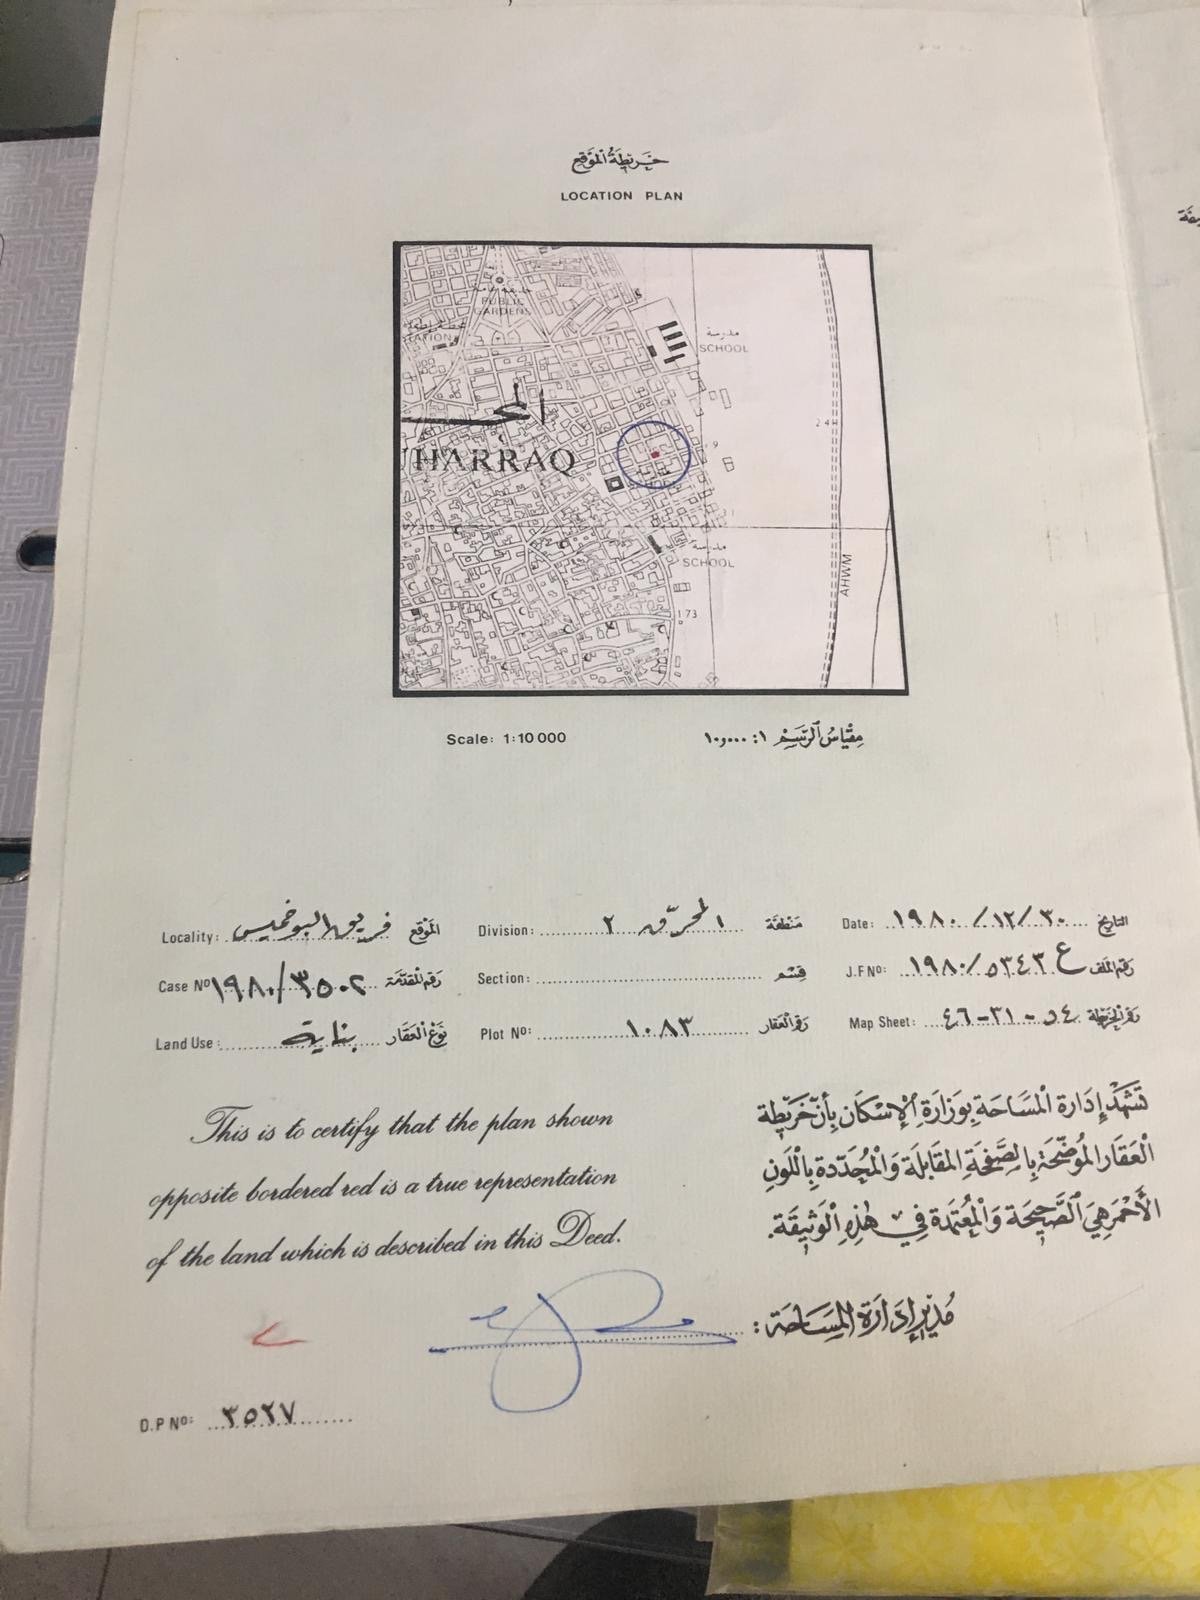 خريطة الموقع
LOCATION PLAN
حديقة عامة
PUBLIC GARDENS
STATION
مدرسة
SCHOOL
المحـ
HARRAQ
24
9
31
مدرسة
SCHOOL
AHWM
173
Scale: 1:10 000 مقياس الرسم ١ : ١٠,٠٠٠
Locality: فريق البوخميس الموقع Division: المحرق ٢ منطقة Date: ١٩٨٠/١٢/٣٠ التاريخ
Case Nº ١٩٨٠/٣٥٠٢ رقم المقدمة Section: قسم J.F Nº: ١٩٨٠/٥٣٤٣ ع رقم الملف
Land Use: بناية نوع العقار Plot Nº: ١٠٨٣ رقم العقار Map Sheet: ٤٦-٣١-٥٤ رقم الخريطة
This is to certify that the plan shown
opposite bordered red is a true representation
of the land which is described in this Deed.
تشهد إدارة المساحة بوزارة الإسكان بأن خريطة
العقار الموضحة بالصفحة المقابلة والمحددة باللون
الأحمر هي الصحيحة والمعتمدة في هذه الوثيقة.
مدير إدارة المساحة:
D.P Nº: ٣٥٢٧